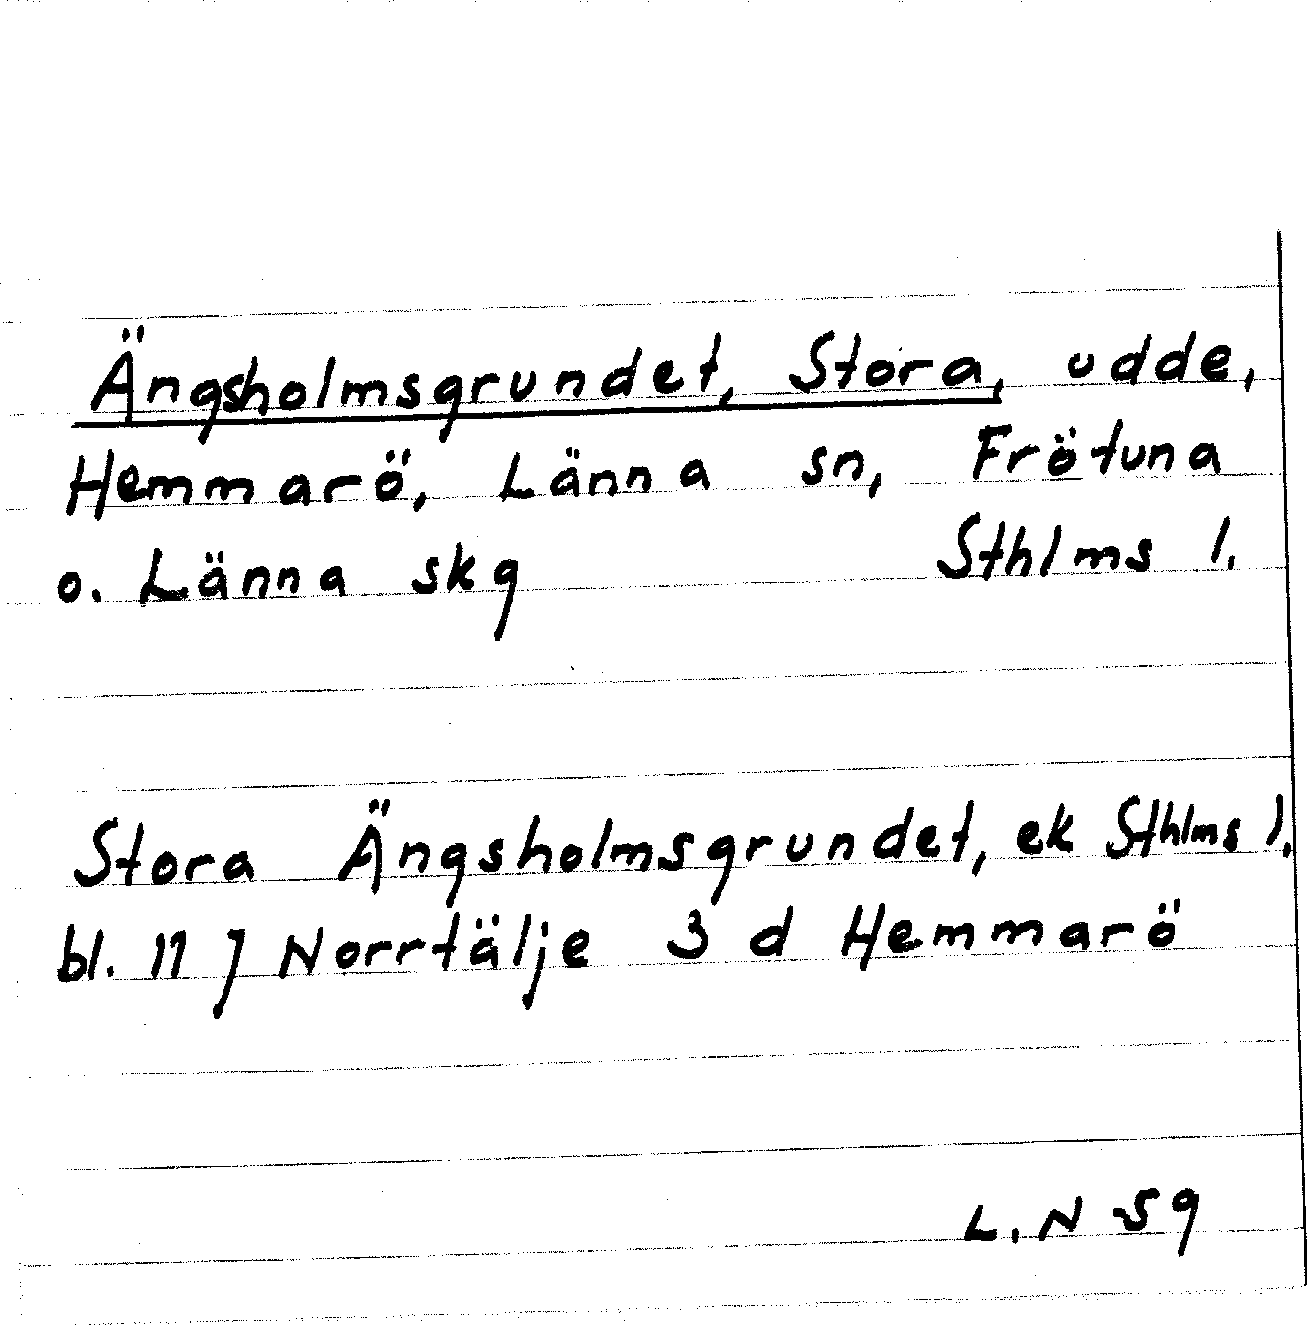 Ängsholmsgrundet, Stora, udde,
Hemmarö, Länna sn, Frötuna
o. Länna skg Sthlms l.
Stora Ängsholmsgrundet, ek Sthlms l.
bl. 11 J Norrtälje 3 d Hemmarö
L. N 59